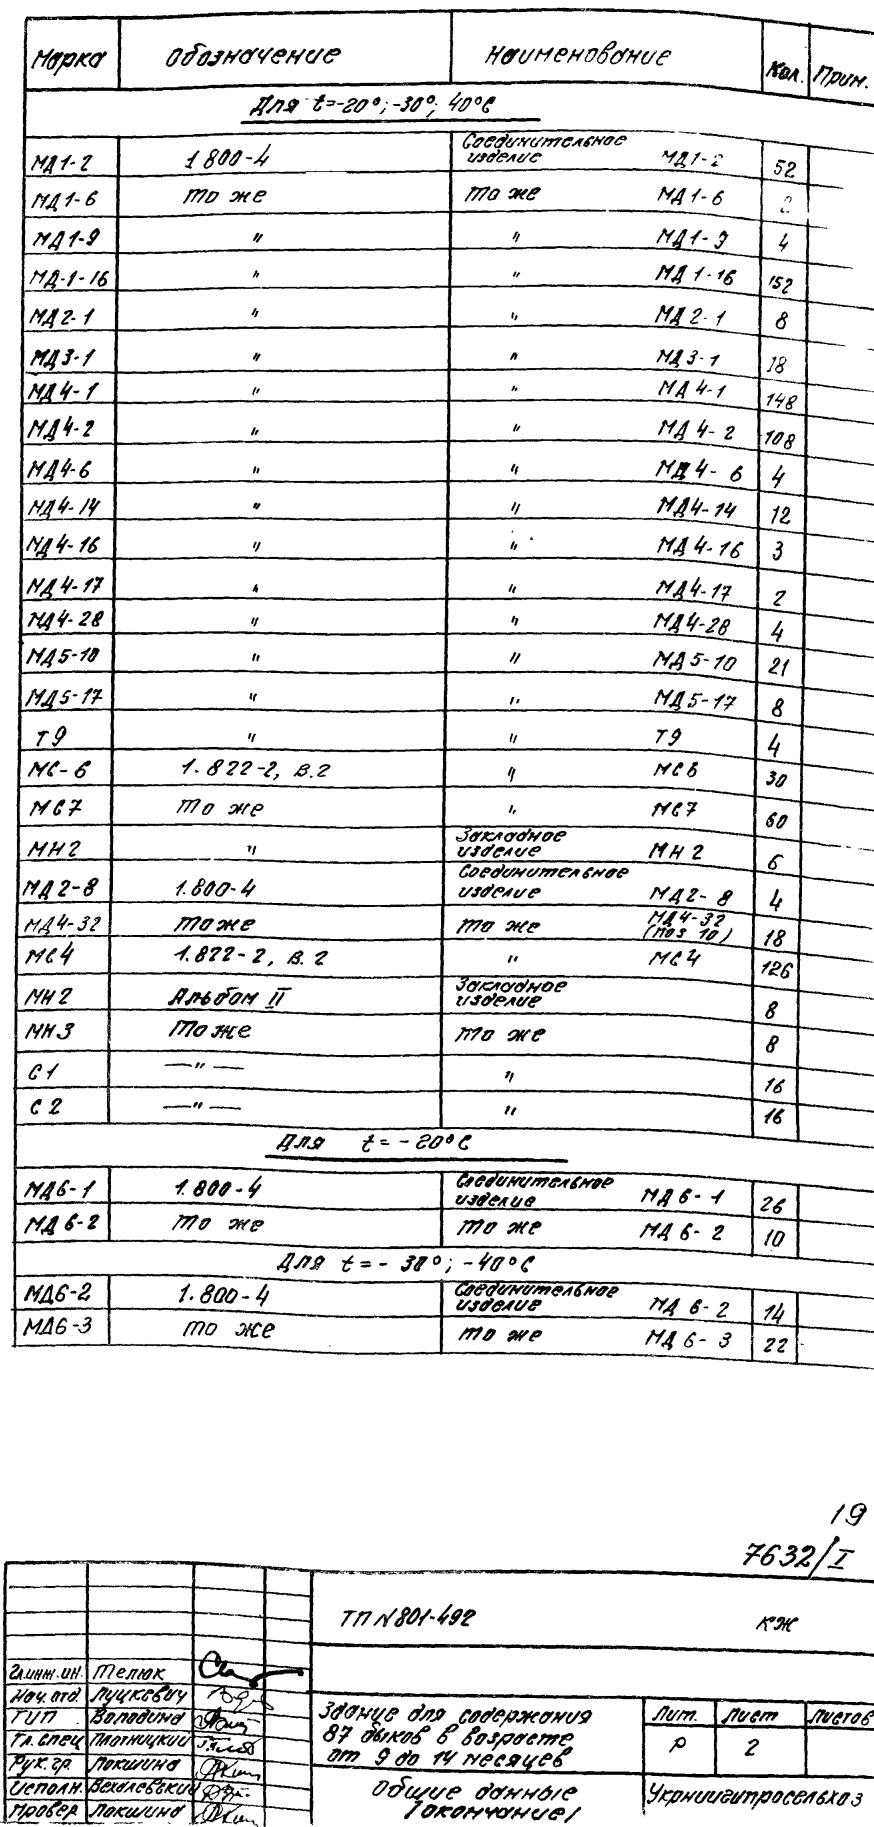 Марка Обозначение Наименование Кол. Прим.
Для t=-20°; -30°; 40°С
МД1-2 1.800-4 Соединительное изделие МД1-2 52
МД1-6 то же то же МД1-6
МД1-9 " " МД1-9 4
МД-1-16 " " МД1-16 152
МД2-1 " " МД2-1 8
МД3-1 " " МД3-1 18
МД4-1 " " МД4-1 148
МД4-2 " " МД4-2 108
МД4-6 " " МД4-6 4
МД4-14 " " МД4-14 12
МД4-16 " " МД4-16 3
МД4-17 " " МД4-17 2
МД4-28 " " МД4-28 4
МД5-10 " " МД5-10 21
МД5-17 " " МД5-17 8
Т9 " " Т9 4
МС-6 1.822-2, В.2 " МС6 30
МС7 то же " МС7 60
МН2 " Закладное изделие МН2 6
МД2-8 1.800-4 Соединительное изделие МД2-8 4
МД4-32 то же то же МД4-32 (поз 10) 18
МС4 1.822-2, В.2 " МС4 126
МН2 Альбом II Закладное изделие 8
МН3 То же то же 8
С1 —"— " 16
С2 —"— " 16
Для t=-20°С
МД6-1 1.800-4 Соединительное изделие МД6-1 26
МД6-2 то же то же МД6-2 10
Для t=-30°; -40°С
МД6-2 1.800-4 Соединительное изделие МД6-2 14
МД6-3 то же то же МД6-3 22
19
7632/I
ТП N801-492 КЖ
Гл.инж.ин. Телюк
Нач.отд. Луцкевич
ГИП Володина
Гл.спец Плотницкий
Рук.гр. Локшина
Исполн.
Провер Локшина
Здание для содержания
87 быков в возрасте
от 9 до 14 месяцев
Лит. Лист Листов
Р 2
Общие данные
/окончание/
Укрниигипросельхоз